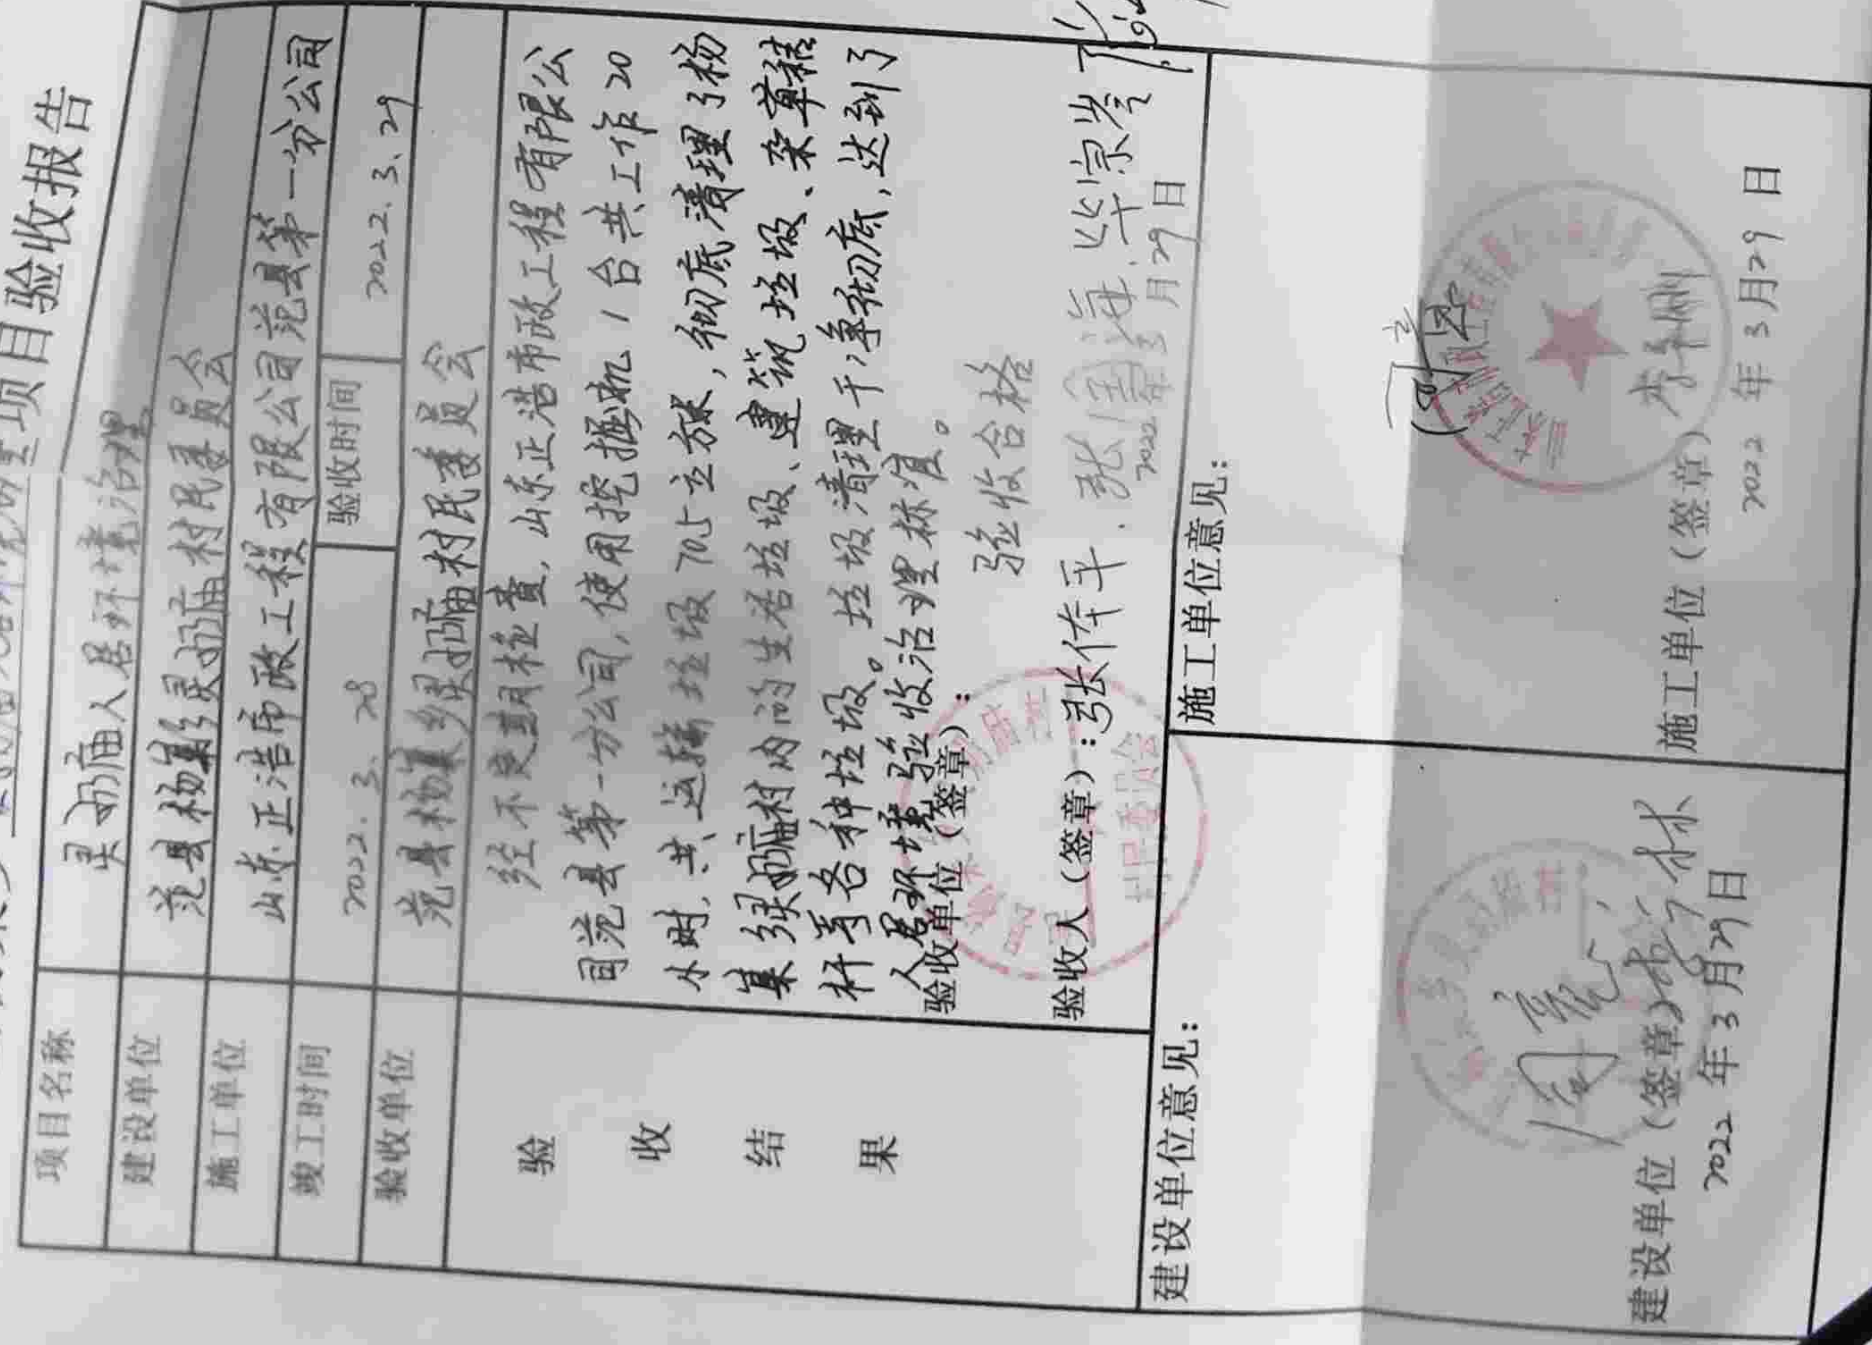 项目验收报告
项目名称 灵奶庙人居环境治理
建设单位 范县杨集乡灵奶庙村民委员会
施工单位 山东正浩市政工程有限公司范县第一分公司
竣工时间 2022.3.28 验收时间 2022.3.29
验收单位 范县杨集乡灵奶庙村民委员会
验收结果
经不定期检查,山东正浩市政工程有限公
司范县第一分公司,使用挖掘机1台共工作20
小时,共运输垃圾705立方米,彻底清理了杨
集乡灵奶庙村内的生活垃圾、建筑垃圾、杂草秸
秆等各种垃圾。垃圾清理干净彻底,达到了
人居环境验收治理标准。
验收单位(签章):
验收合格
验收人(签章):张作平.张国海.毕宗岑
2022年3月29日
村民委员会
建设单位意见:
建设单位(签章)
2022年3月29日
施工单位意见:
同意
施工单位(签章)
2022年3月29日